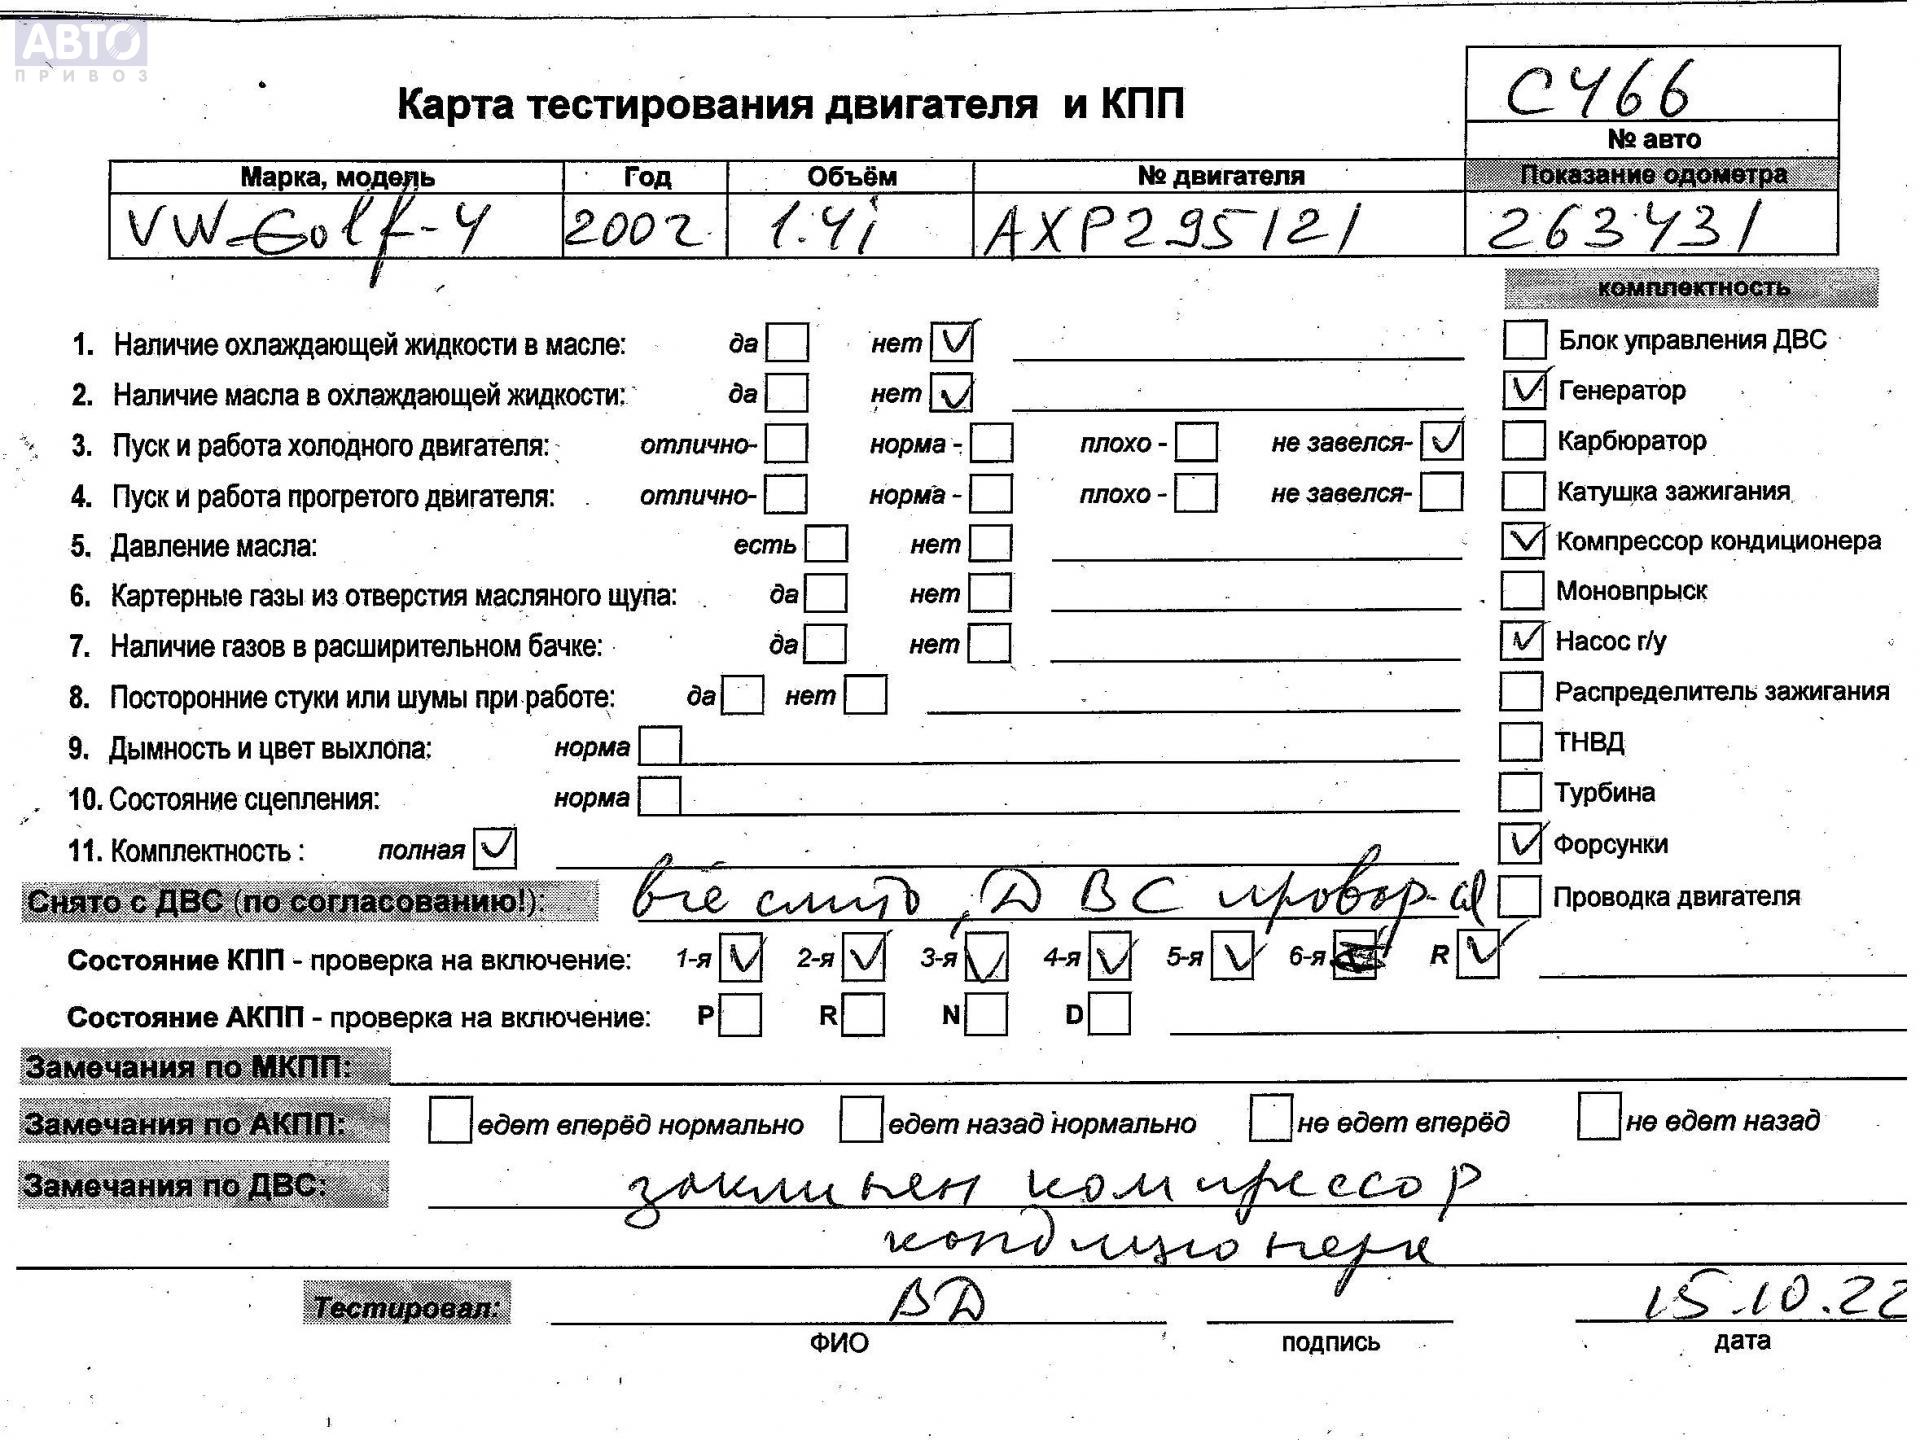 АВТО
ПРИВОЗ
Карта тестирования двигателя и КПП
С466
№ авто
Марка, модель Год Объём № двигателя Показание одометра
VW Golf-4 2002 1.4i AXP295121 263431
комплектность
1. Наличие охлаждающей жидкости в масле: да нет ✓
2. Наличие масла в охлаждающей жидкости: да нет ✓
3. Пуск и работа холодного двигателя: отлично- норма - плохо - не завелся- ✓
4. Пуск и работа прогретого двигателя: отлично- норма - плохо - не завелся-
5. Давление масла: есть нет
6. Картерные газы из отверстия масляного щупа: да нет
7. Наличие газов в расширительном бачке: да нет
8. Посторонние стуки или шумы при работе: да нет
9. Дымность и цвет выхлопа: норма
10. Состояние сцепления: норма
11. Комплектность : полная ✓
Блок управления ДВС
✓ Генератор
Карбюратор
Катушка зажигания
✓ Компрессор кондиционера
Моновпрыск
✓ Насос г/у
Распределитель зажигания
ТНВД
Турбина
✓ Форсунки
Проводка двигателя
Снято с ДВС (по согласованию!): всё слито, ДВС провор-ся
Состояние КПП - проверка на включение: 1-я ✓ 2-я ✓ 3-я ✓ 4-я ✓ 5-я ✓ 6-я R ✓
Состояние АКПП - проверка на включение: P R N D
Замечания по МКПП:
Замечания по АКПП: едет вперёд нормально едет назад нормально не едет вперёд не едет назад
Замечания по ДВС: заклинен компрессор
кондиционера
Тестировал: ВД 15.10.22
ФИО подпись дата